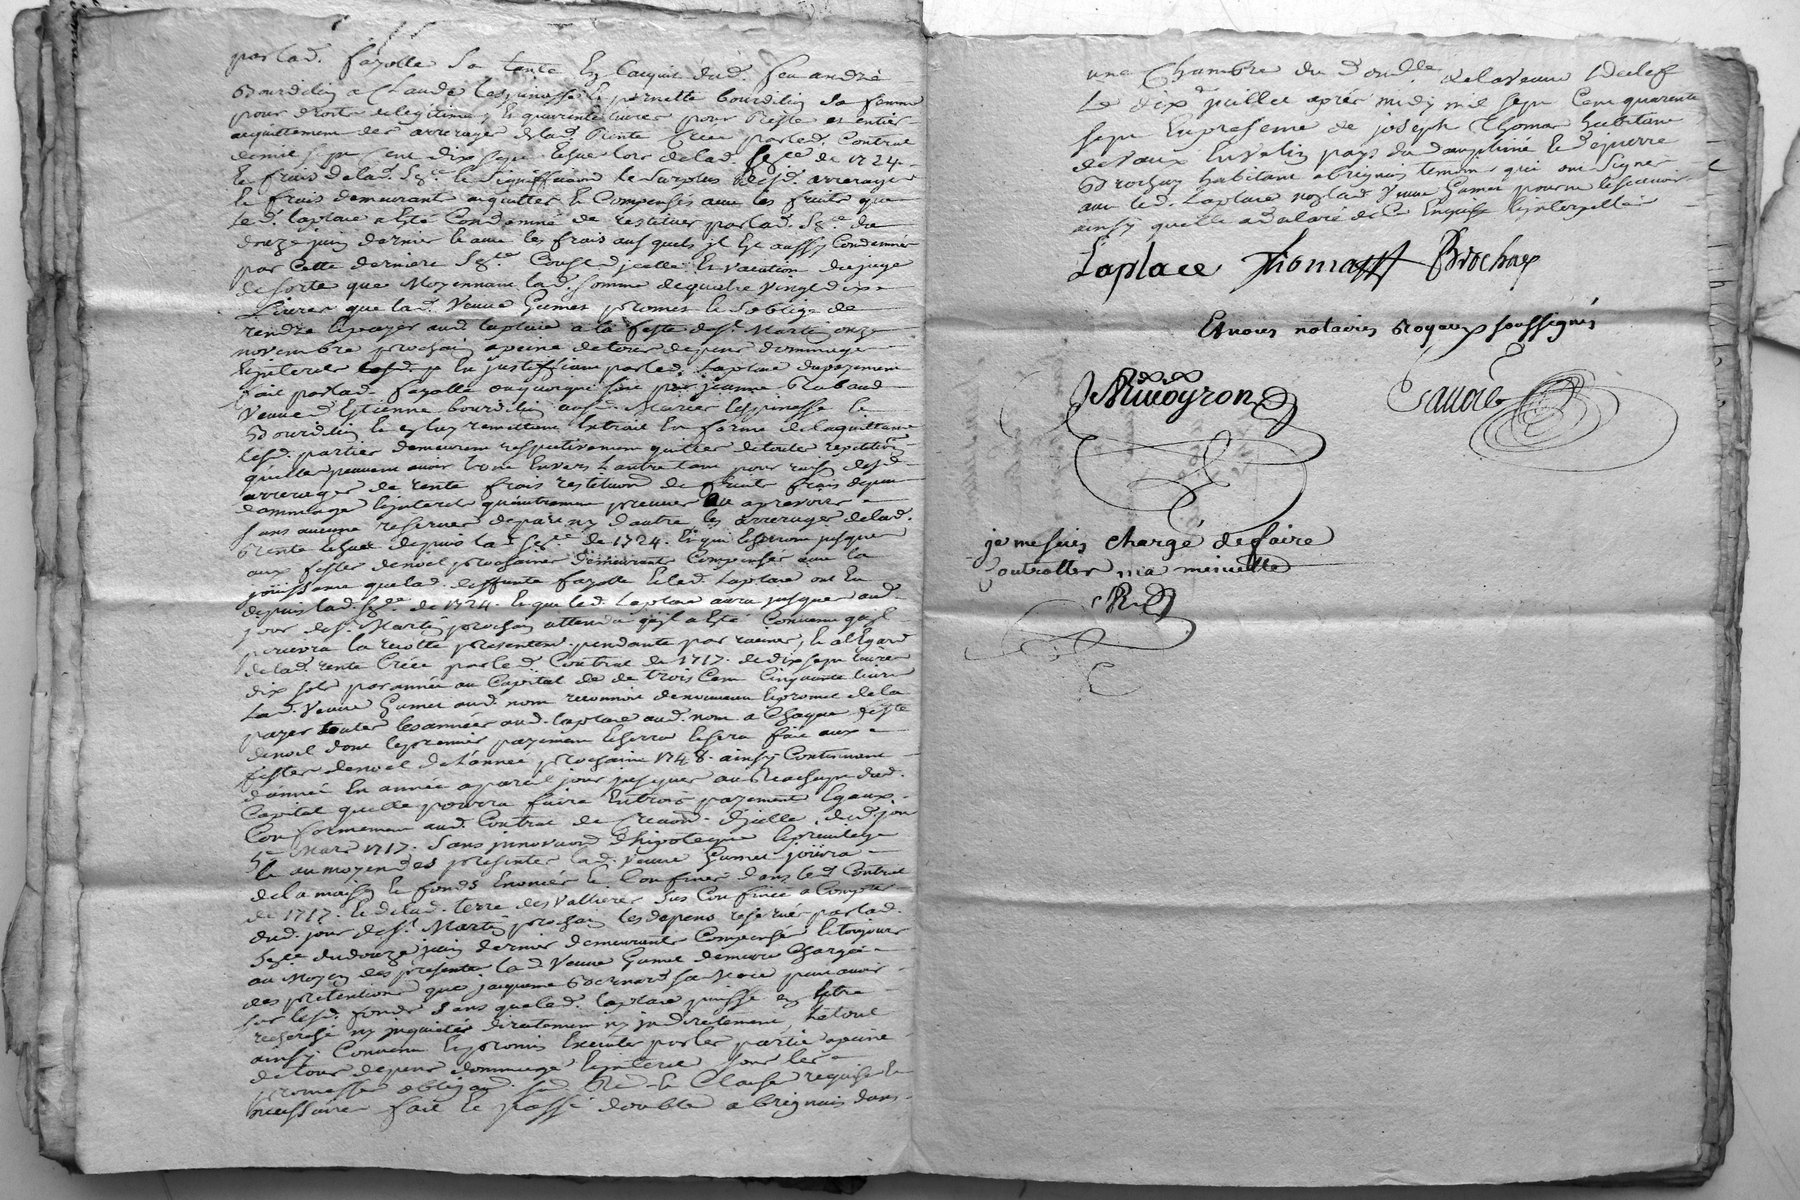 par lad. fayolle sa tante En l'acquit dud. feu andré
Bourdelin a Claude lespinasse & pernette bourdelin sa femme
pour droits de legitime, Et quarente livres pour Reste et entier
acquittement des arrerages de lad. Rente Créée par led. Contrat
de mil sept Cent dix sept Echue lors de lad. Sgce de 1724.
les frais de lad. Sgce le Signiffication le surplus desd. arrerages
& frais demeurant acquittes & Compensés avec les fruits que
led. laplace a Eté Condamné de restituer par lad. Sgce du
douze juin dernier & avec les frais ausquels jl Est aussy Condamné
par Cette derniere Sgce Coust d'jcelle & vacation du juge
de sorte que Moyennant lad. somme de quatre vingt dix
Livres que lad. Veuve Gumet promet & s'oblige de
rendre & payer aud. laplace a la feste de St. Martin onze
novembre prochain a peine de tous depens dommages
& interets et en justiffiant par led. Laplace du payement
fait par lad. fayolle ou quoique soit par jeanne Brabaud
Veuve d'Estienne bourdelin auxd. Mariés lespinasse &
Bourdelin & en luy remettant Extrait En forme de la quittance
lesd. parties demeurent respectivement quittes de toutes repetitions
qu'elles peuvent avoir l'une Envers l'autre tant pour raison desd.
arrerages de rente frais restitution de fruits frais depens
dommages & interets qu'autrement
sans aucune reserve de part ny d'autre, les arrerages de lad.
Rente Echue depuis la Sgce de 1724. Et qui Echerront jusques
aux festes de noel prochaines demeurants Compensés avec la
jouissance que lad. deffunte fayolle & led. Laplace ont Eu
depuis lad. Sgce de 1724. & que led. Laplace aura jusques aud.
jour de St. Martin prochain attendu qu'jl a Eté Convenu qu'jl
percevra la recolte presentement pendante par racines, & a l'Egard
de lad. rente Créée par led. Contrat de 1717. de dix sept livres
dix sols par année au Capital de de trois Cent Cinquante livres
Lad. Veuve Gumet aud. nom reconnoit de nouveau & promet de la
payer toutes les années aud. laplace aud. nom a Chaque feste
de noel dont le premier payement Echerra & sera fait aux
festes de noel de l'année prochaine 1748. ainsy Continuant
d'année En année a pareil jour jusques au Rachapt dud.
Capital quelle pourra faire En trois payements Egaux
Conformement aud. Contrat de Creation d'jcelle, dud. jour
Mars 1717. sans jnnovation d'hipoteque & privilege
& au moyen des presentes lad. Veuve Gumet jouira
de la maison & fonds Enoncés & Confinés dans led. Contrat
de 1717. & de lad. terre des Vallieres sus Confinée a Compter
dud. jour de St. Martin prochain les depens reservés par lad.
Sgce du douze juin dernier demeurants Compensés & toujours
au Moyen des presentes lad. Veuve Gumet demeure Chargée
des pretentions que jacqueme Bernard sa Niece peut avoir
sur lesd. fonds sans que led. laplace puisse en Estre
recherché ny jnquieté directement ny jndirectement, le tout
ainsy Convenu & promis Executer par les parties a peine
de tous depens dommages & interets sous les
promesses obligaon. Clauses requises &
necessaires fait & passé double a brignais dans
une Chambre du Domille de la veuve Declef
Le dixe juillet après midy mil sept Cent quarente
sept En presence de joseph Thomas habitant
de Vaux Envelin pays du dauphiné & de pierre
Brochay habitant a brignais temoins qui ont Signé
avec led. Laplace non lad. Veuve Gumet pour ne le sçavoir
ainsy qu'elle a declaré de Ce Enquise & interpellée
Laplace Thomasss Brochay
Et nous notaires Royaux soussignés
Nivoyron
je me suis chargé de faire
Controller ma minutte